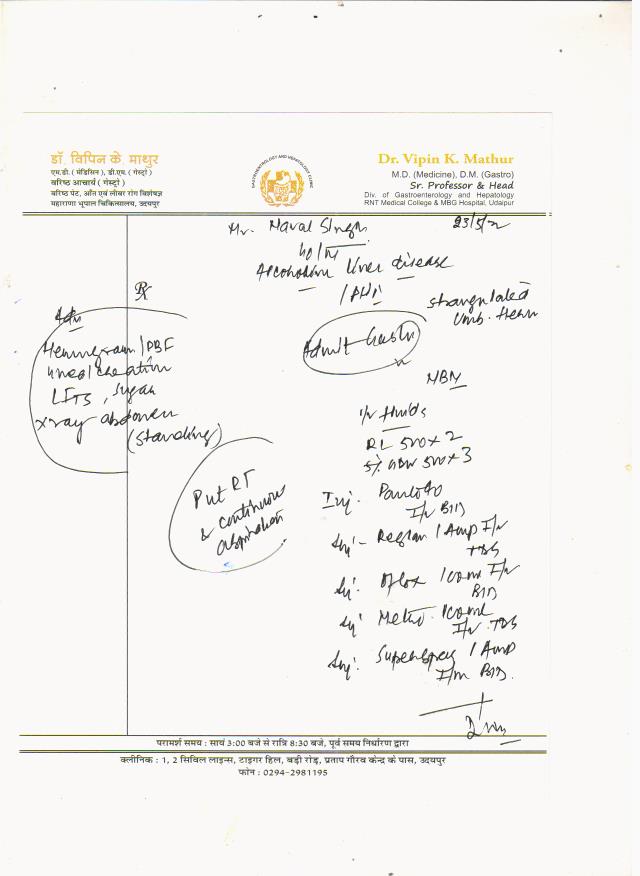 डॉ. विपिन के. माथुर
एम.डी. ( मेडिसिन ), डी.एम. ( गेस्ट्रो )
वरिष्ठ आचार्य ( गेस्ट्रो )
वरिष्ठ पेट, आँत एवं लीवर रोग विशेषज्ञ
महाराणा भूपाल चिकित्सालय, उदयपुर
GASTROENTEROLOGY AND HEPATOLOGY CLINIC
Dr. Vipin K. Mathur
M.D. (Medicine), D.M. (Gastro)
Sr. Professor & Head
Div. of Gastroenterology and Hepatology
RNT Medical College & MBG Hospital, Udaipur
Mr. Naval Singh
40/M
Liver disease
Strangulated
Umb. Hern
Rx
Adv
Hemogram/PBF
LFTs, Sugar
X ray abdomen
(Standing)
Admit Gastro
NBM
I/v fluids
RL 500 x 2
500 x 3
Put RT
& continuous
aspiration
Inj. Panto 40
I/v BID
Inj - Reglan 1 Amp I/v
TDS
Inj. Oflox I/v
BID
Inj. Metro
I/v TDS
Inj. 1 Amp
I/m BID.
परामर्श समय : सायं 3:00 बजे से रात्रि 8:30 बजे, पूर्व समय निर्धारण द्वारा
क्लीनिक : 1, 2 सिविल लाइन्स, टाइगर हिल, बड़ी रोड़, प्रताप गौरव केन्द्र के पास, उदयपुर
फोन : 0294-2981195